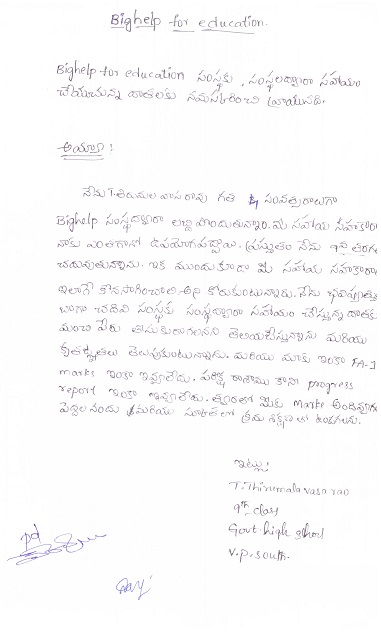 Bighelp for education.
Bighelp for education సంస్థకు, సంస్థద్వారా సహాయం
చేయుచున్న దాతలకు నమస్కరించి వ్రాయునది.
అయ్యా :
నేను T. తిరుమల వాసరావు గత 4 సంవత్సరాలుగా
Bighelp సంస్థద్వారా లబ్ది పొందుతున్నాను. మీ సహాయ సహకారా
నాకు ఎంతగానో ఉపయోగపడ్డాయి. ప్రస్తుతం నేను 9వ తరగతి
చదువుతున్నాను. ఇక ముందుకూడా మీ సహాయ సహకారాల
ఇలాగే కొనసాగించాలి అని కోరుకుంటున్నాను. నేను భవిష్యత్తు
బాగా చదివి సంస్థకు సంస్థద్వారా సహాయం చేస్తున్న దాతక
మంచి పేరు తీసుకురాగలనని తెలియజేస్తున్నాను మరియు
కృతజ్ఞతలు తెలుపుకుంటున్నాను. మరియు మాకు ఇంకా FA-1
marks ఇంకా ఇవ్వలేదు. పరీక్ష రాశాము కానీ progress
report ఇంకా ఇవ్వలేదు. త్వరలో మీకు marks అందివ్వగ
పెద్దలనందు మరియు స్కూల్ లో క్రమ శిక్షణ తో ఉండగలను.
ఇట్లు
T. Thirumala vasa rao
9th class
Govt. high school
V.P. South.
pd